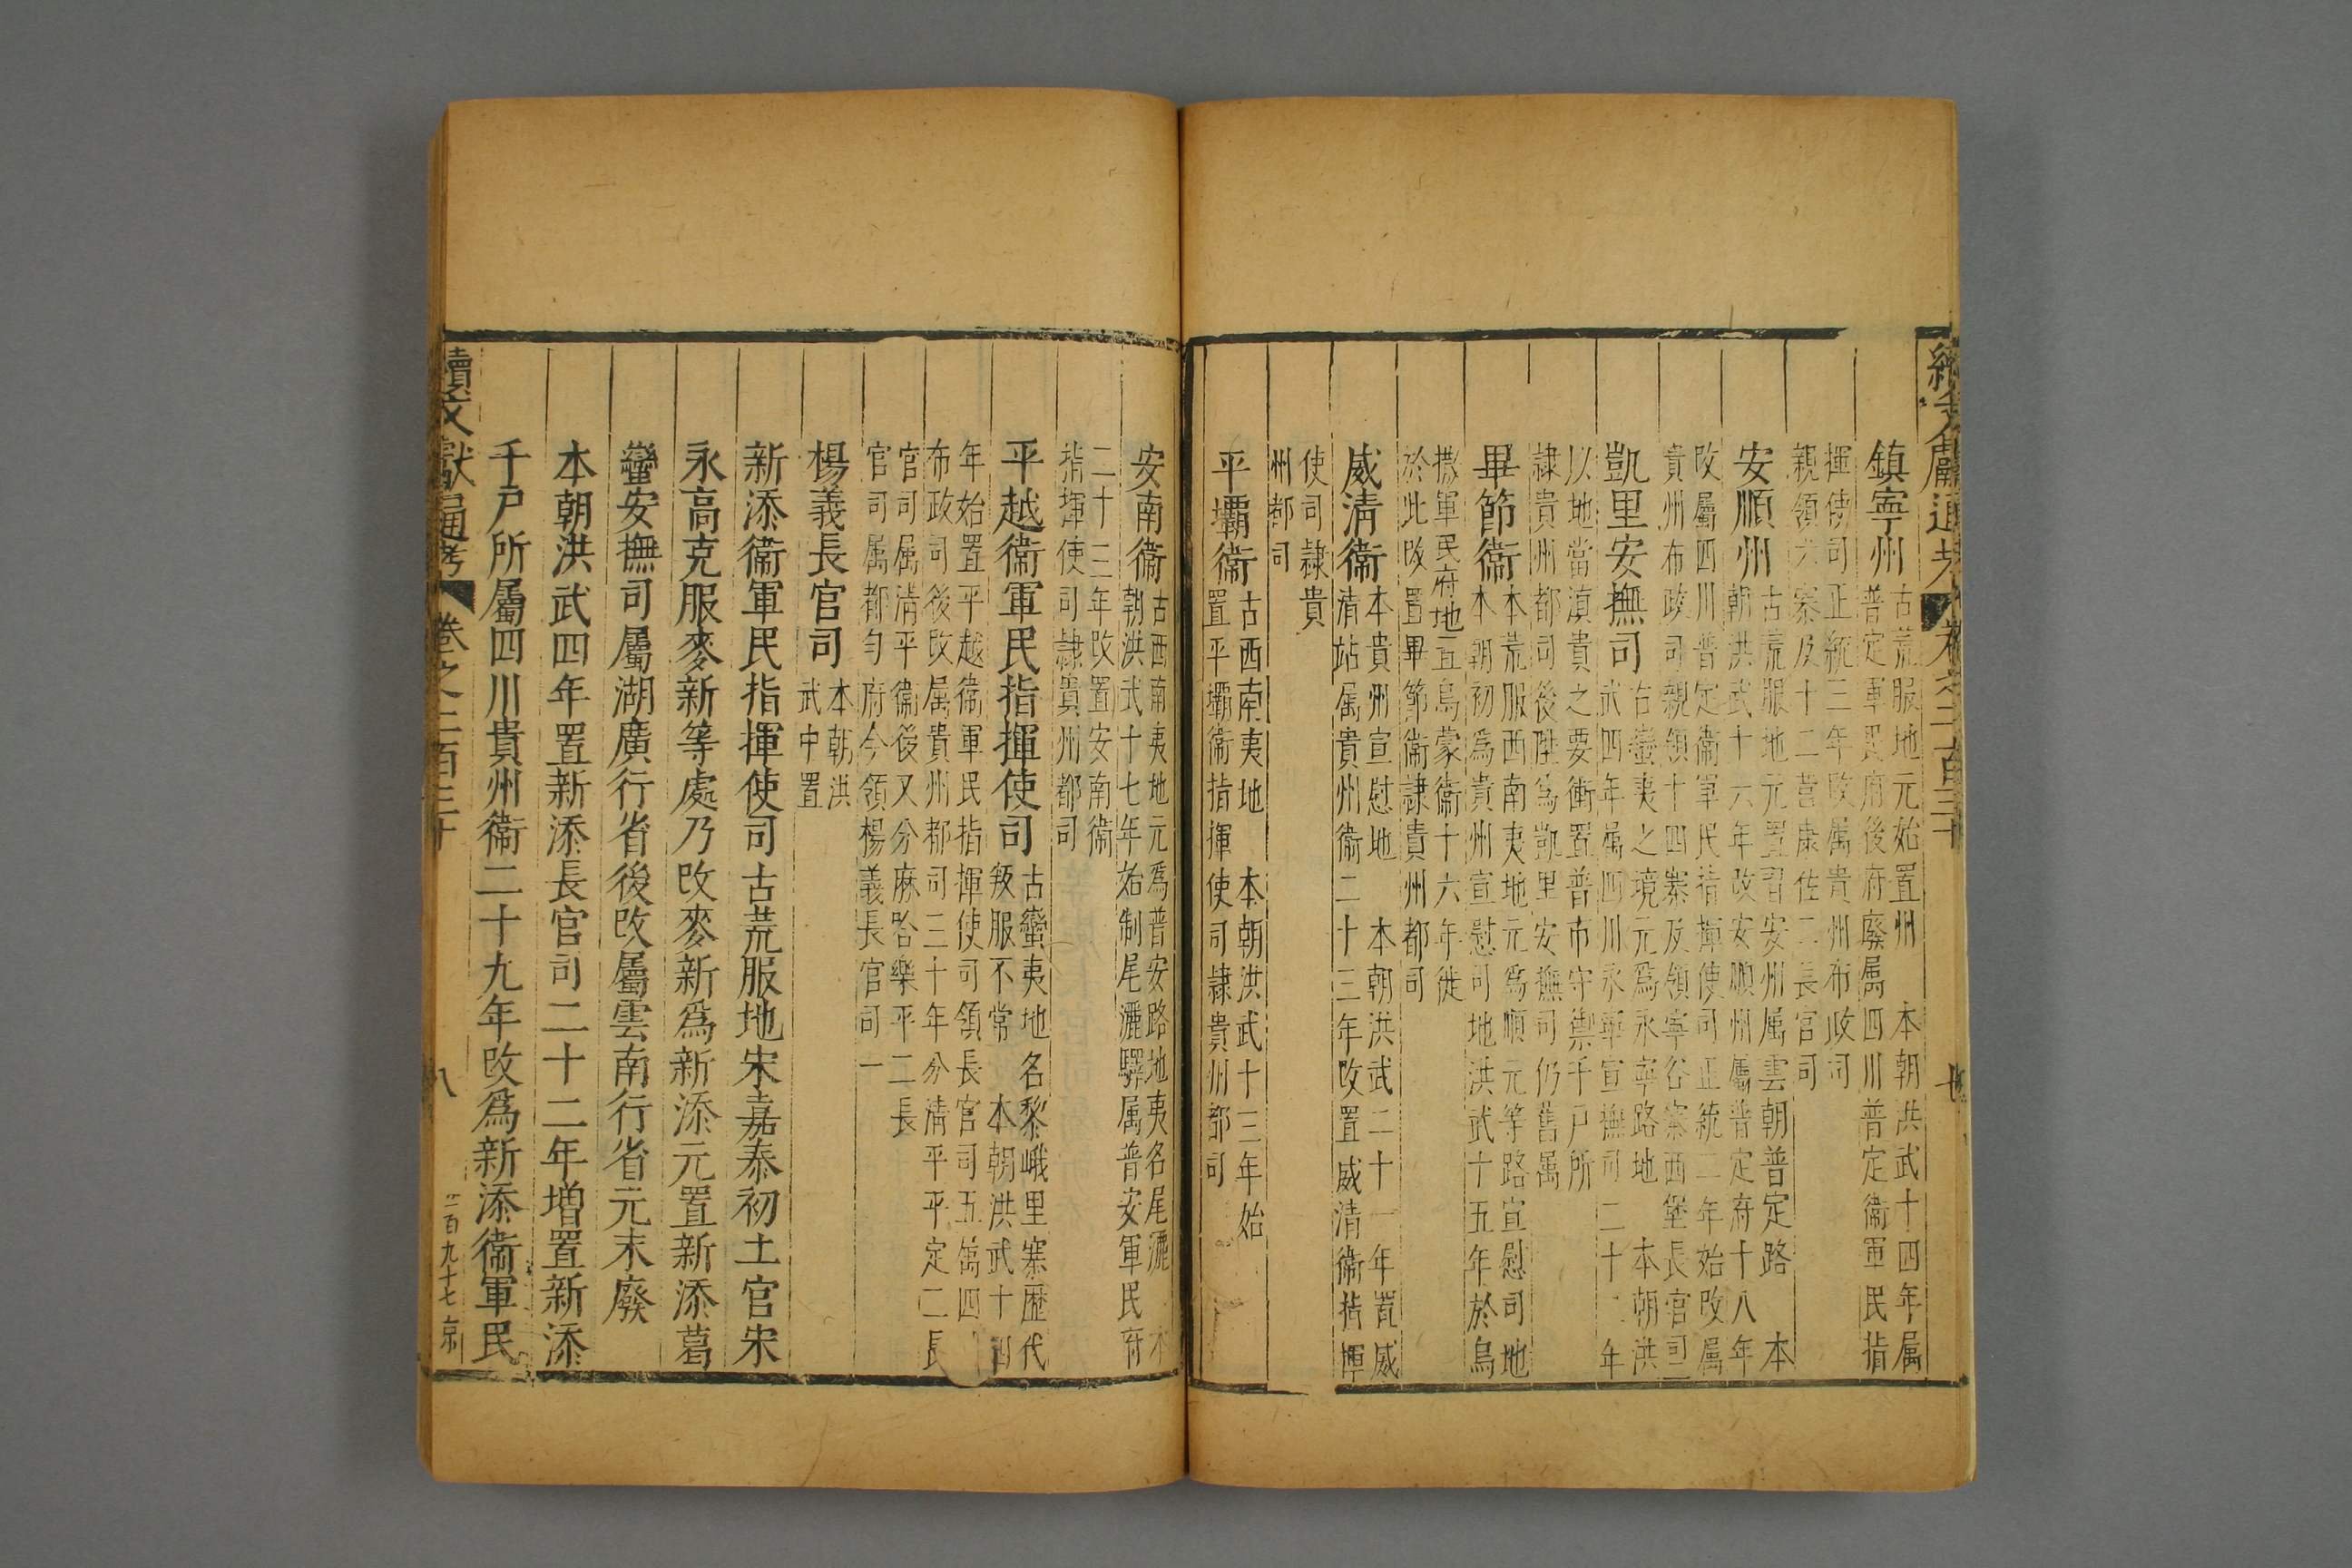 續文獻通考 卷之二百三十 七
鎮寧州 古荒服地元始置州 本朝洪武十四年属
普定軍民府後府廢属四川普定衞軍民指
揮使司正統三年改属貴州布政司
親領六寨及十二營康佐二長官司
安順州 古荒服地元置習安州属雲朝普定路 本
朝洪武十六年改安順州屬普定府十八年
改屬四川普定衞軍民指揮使司正統二年始改属
貴州布政司親領十四寨及領寧谷寨西堡長官司二
凱里安撫司 古蠻夷之境元爲永寧路地 本朝洪
武四年属四川永寧宣撫司二十二年
以地當滇貴之要衝置普市守禦千戶所
隷貴州都司後陞爲凱里安撫司仍舊属
畢節衞 本荒服西南夷地元爲順元等路宣慰司地
本朝初爲貴州宣慰司地洪武十五年於烏
撒軍民府地置烏蒙衞十六年徙
於此改置畢節衞隷貴州都司
威淸衞 本貴州宣慰地 本朝洪武二十一年置威
清站属貴州衞二十三年改置威清衞指揮
使司隷貴
州都司
平壩衞 古西南夷地 本朝洪武十三年始
置平壩衞指揮使司隷貴州都司
安南衞 古西南夷地元爲普安路地夷名尾灑 本
朝洪武十七年始制尾灑驛属普安軍民府
二十三年改置安南衞
指揮使司隷貴州都司
平越衞軍民指揮使司 古蠻夷地名黎峨里寨歷代
叛服不常 本朝洪武十四
年始置平越衞軍民指揮使司領長官司五属四
布政司後改属貴州都司三十年分清平平定二長
官司属清平衞後又分麻哈樂平二長
官司属都匀府今領楊義長官司一
楊義長官司 本朝洪
武中置
新添衞軍民指揮使司古荒服地宋嘉泰初土官宋
永高克服麥新等處乃改麥新爲新添元置新添葛
蠻安撫司屬湖廣行省後改屬雲南行省元末廢
本朝洪武四年置新添長官司二十二年增置新添
千戶所屬四川貴州衞二十九年改爲新添衞軍民
續文獻通考 卷之二百三十 八
二百九十七 京